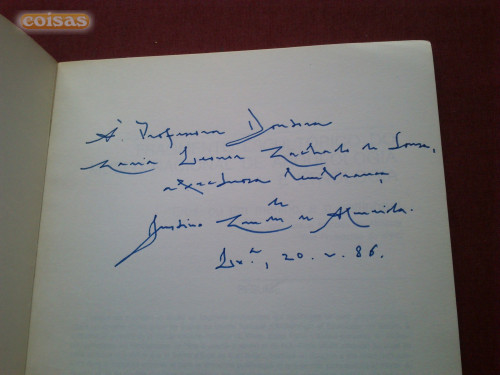 coisas
À Professora Doutora
Maria Leonor Machado de Sousa,
afectuosa lembrança,
de
Justino Mendes de Almeida.
Lx.ª, 20. V. 86.